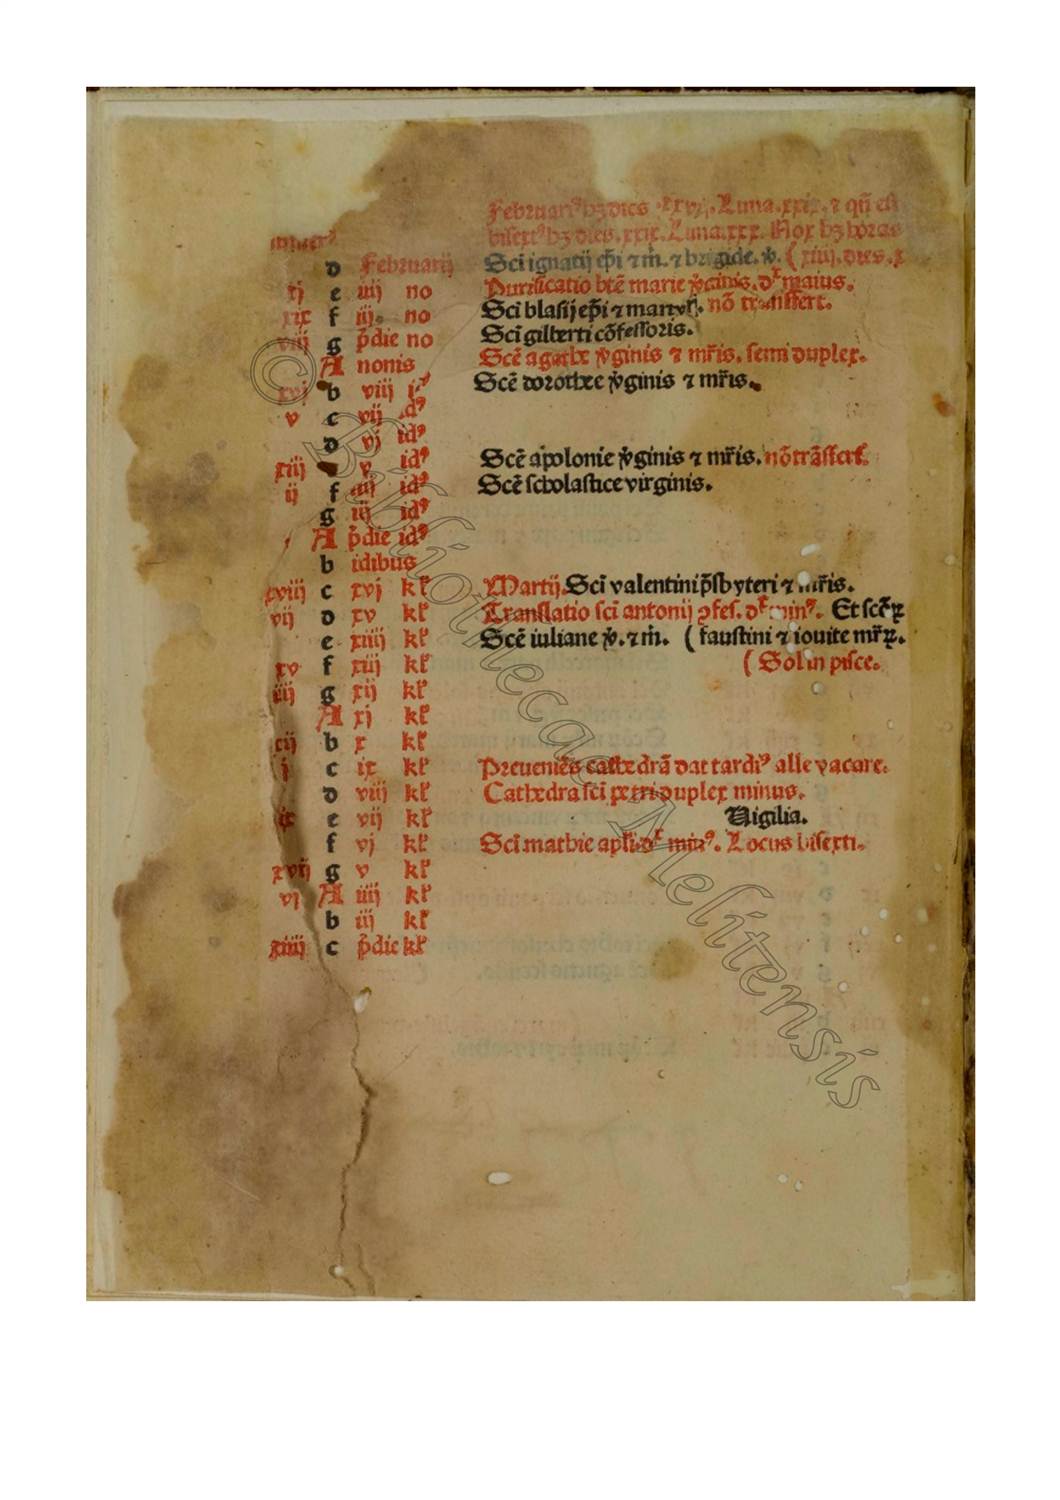 Februariꝰ hȝ dies .xxviij. Luna .xxix. ⁊ qñ eſt
biſextꝰ hȝ dies .xxix. Luna .xxx. Nox hȝ horas
d Februarij Sci ignatij ep̄i ⁊ m̄. ⁊ brigide. v̄. ( xiiij. dies. x
xj e iiij no Purificatio btē marie v̄ginis. dᷓ maius.
xix f iij. no Sci blaſij ep̄i ⁊ martyr̄. nō tranſfert.
viij g p̄die no Sci gilberti cōfeſſoris.
A nonis Scē agathe v̄ginis ⁊ mr̄is. ſemi duplex.
xvj b viij idꝰ Scē dorothee v̄ginis ⁊ mr̄is.
v c vij idꝰ
d vj idꝰ
xiij v idꝰ Scē apolonie v̄ginis ⁊ mr̄is. nō trāſfert.
ij f iiij idꝰ Scē ſcholaſtice virginis.
g iij idꝰ
A p̄die idꝰ
b idibus
xviij c xvj kl̄ Martij. Sci valentini p̄ſbyteri ⁊ mr̄is.
vij d xv kl̄ Tranſlatio ſci antonij ꝯfeſ. dᷓ minꝰ. Et ſcōꝝ
e xiiij kl̄ Scē iuliane v̄. ⁊ m̄. ( fauſtini ⁊ iouite mr̄ꝝ.
xv f xiij kl̄ ( Sol in piſce.
iiij g xij kl̄
A xj kl̄
xij b x kl̄
j c ix kl̄ Preueniēs cathedrā dat tardiꝰ alle vacare.
d viij kl̄ Cathedra ſci petri duplex minus.
ix e vij kl̄ Vigilia.
f vj kl̄ Sci mathie apl̄i. dᷓ minꝰ. Locus biſexti.
xvij g v kl̄
vj A iiij kl̄
b iij kl̄
xiiij c p̄die kl̄
© Bibliothecae Melitensis